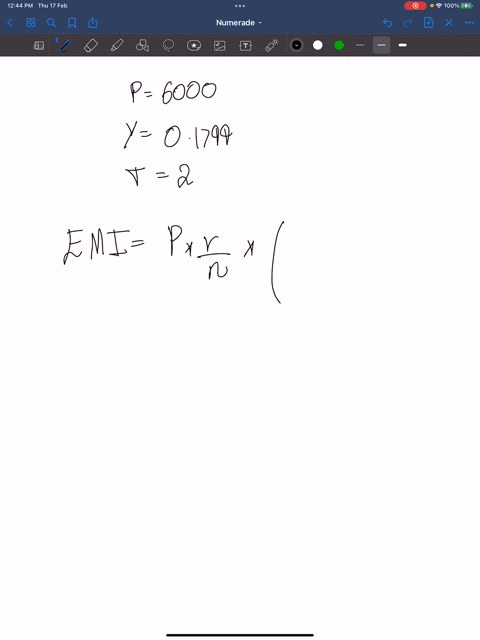 12:44 PM Thu 17 Feb
100%
Numerade
P = 6000
r = 0.1799
T = 2
EMI = P × r/n × (